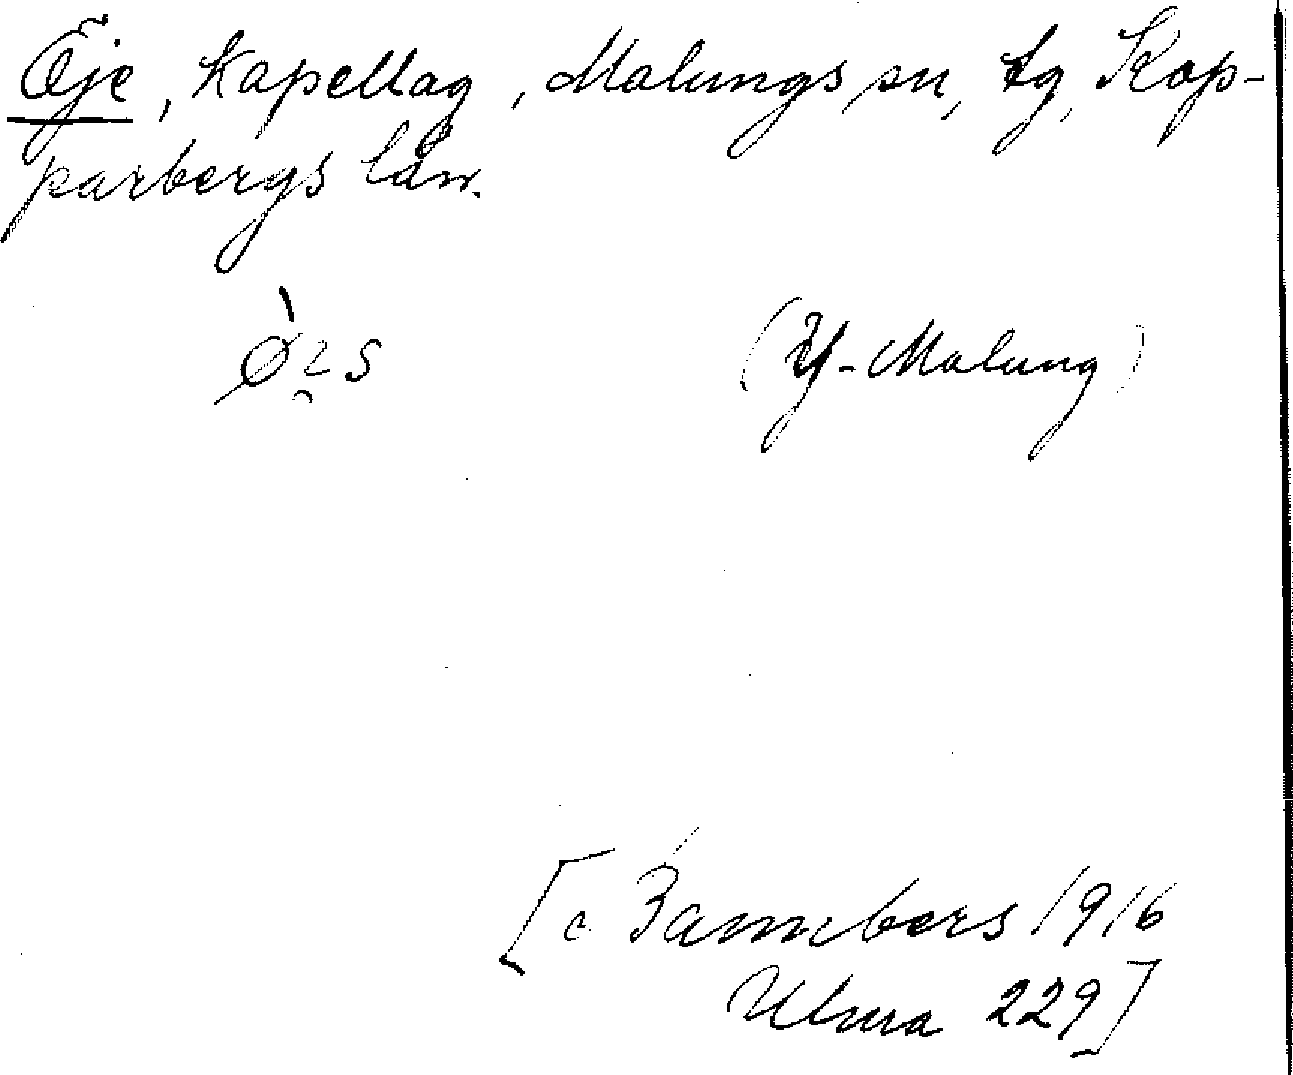 Öje, kapellag, Malungs sn, tg, Kop-
parbergs län.
(Y-Malung)
1916
Ulma 229]